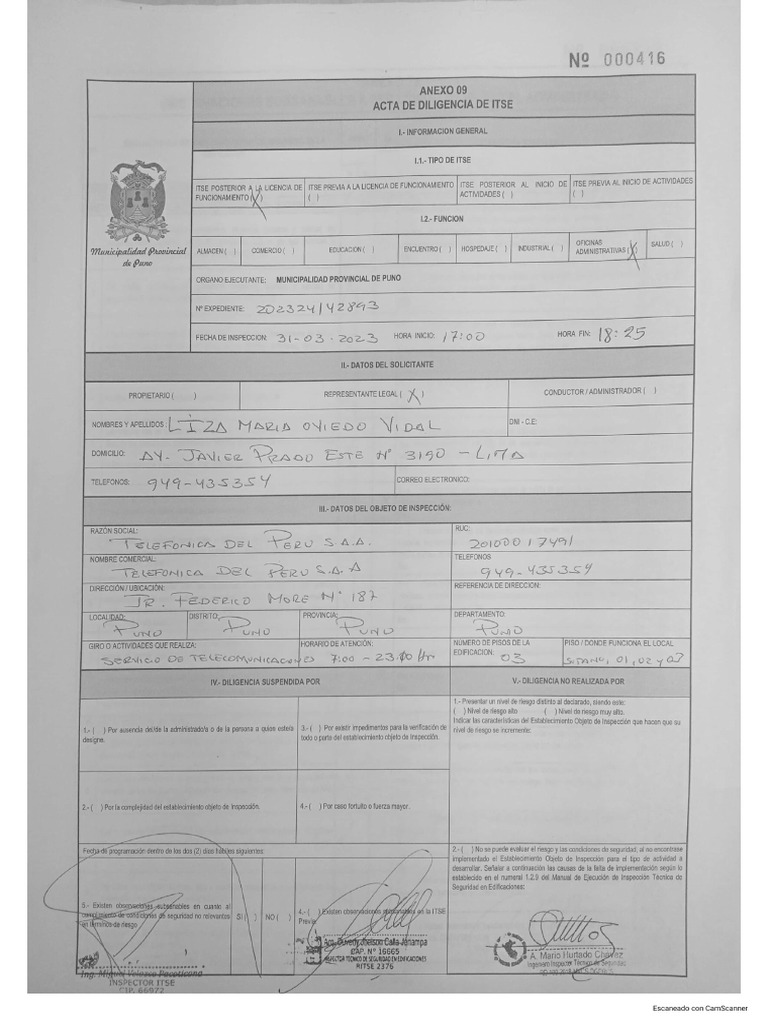 Nº 000416
ANEXO 09
ACTA DE DILIGENCIA DE ITSE
I.- INFORMACION GENERAL
I.1.- TIPO DE ITSE
ITSE POSTERIOR A LA LICENCIA DE FUNCIONAMIENTO (X)
ITSE PREVIA A LA LICENCIA DE FUNCIONAMIENTO ( )
ITSE POSTERIOR AL INICIO DE ACTIVIDADES ( )
ITSE PREVIA AL INICIO DE ACTIVIDADES ( )
I.2.- FUNCION
Municipalidad Provincial
de Puno
ALMACEN ( ) COMERCIO ( ) EDUCACION ( ) ENCUENTRO ( ) HOSPEDAJE ( ) INDUSTRIAL ( ) OFICINAS ADMINISTRATIVAS (X) SALUD ( )
ORGANO EJECUTANTE: MUNICIPALIDAD PROVINCIAL DE PUNO
Nº EXPEDIENTE: 202324/42893
FECHA DE INSPECCION: 31-03-2023 HORA INICIO: 17:00 HORA FIN: 18:25
II.- DATOS DEL SOLICITANTE
PROPIETARIO ( ) REPRESENTANTE LEGAL (X) CONDUCTOR / ADMINISTRADOR ( )
NOMBRES Y APELLIDOS: LIZA MARIA OVIEDO VIDAL DNI - C.E:
DOMICILIO: AV. JAVIER PRADO ESTE Nº 3190 - LIMA
TELEFONOS: 949-435354 CORREO ELECTRONICO:
III.- DATOS DEL OBJETO DE INSPECCIÓN:
RAZÓN SOCIAL: TELEFONICA DEL PERU S.A.A. RUC: 20100017491
NOMBRE COMERCIAL: TELEFONICA DEL PERU S.A.A TELEFONOS 949-435354
DIRECCIÓN / UBICACIÓN: JR. FEDERICO MORE Nº 187 REFERENCIA DE DIRECCION:
LOCALIDAD: PUNO DISTRITO: PUNO PROVINCIA: PUNO DEPARTAMENTO: PUNO
GIRO O ACTIVIDADES QUE REALIZA: SERVICIO DE TELECOMUNICACIONES HORARIO DE ATENCIÓN: 7:00 - 23:00 Hr NÚMERO DE PISOS DE LA EDIFICACION: 03 PISO / DONDE FUNCIONA EL LOCAL SOTANO, 01, 02 y 03
IV.- DILIGENCIA SUSPENDIDA POR
1.- ( ) Por ausencia del/de la administrado/a o de la persona a quien este/a designe.
3.- ( ) Por existir impedimentos para la verificación de todo o parte del establecimiento objeto de Inspección.
2.- ( ) Por la complejidad del establecimiento objeto de Inspección.
4.- ( ) Por caso fortuito o fuerza mayor.
Fecha de programación dentro de los dos (2) días hábiles siguientes:
5.- Existen observaciones subsanables en cuanto al cumplimiento de condiciones de seguridad no relevantes en términos de riesgo SI ( ) NO ( )
4.- ( ) Existen observaciones subsanables en la ITSE Previa.
V.- DILIGENCIA NO REALIZADA POR
1.- Presentar un nivel de riesgo distinto al declarado, siendo este:
( ) Nivel de riesgo alto ( ) Nivel de riesgo muy alto.
Indicar las características del Establecimiento Objeto de Inspección que hacen que su nivel de riesgo se incremente:
2.- ( ) No se puede evaluar el riesgo y las condiciones de seguridad, al no encontrase implementado el Establecimiento Objeto de Inspección para el tipo de actividad a desarrollar. Señalar a continuación las causas de la falta de implementación según lo establecido en el numeral 1.2.9 del Manual de Ejecución de Inspección Técnica de Seguridad en Edificaciones:
INSPECTOR ITSE
CIP. 66072
CAP. Nº 16665
INSPECTOR TECNICO DE SEGURIDAD EN EDIFICACIONES
RITSE 2376
A. Mario Hurtado Chávez
Ingeniero Inspector Técnico de Seguridad
Escaneado con CamScanner